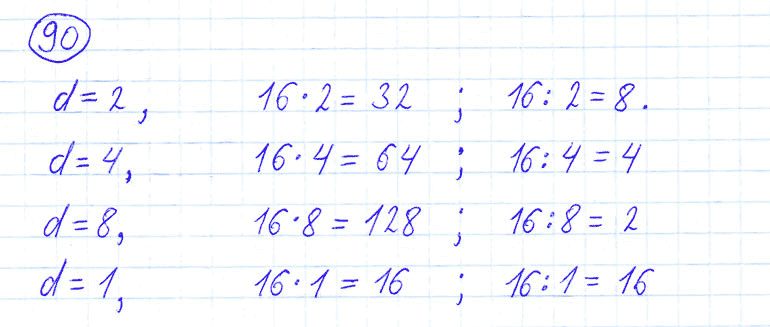 90
d = 2, 16 · 2 = 32 ; 16 : 2 = 8.
d = 4, 16 · 4 = 64 ; 16 : 4 = 4
d = 8, 16 · 8 = 128 ; 16 : 8 = 2
d = 1, 16 · 1 = 16 ; 16 : 1 = 16